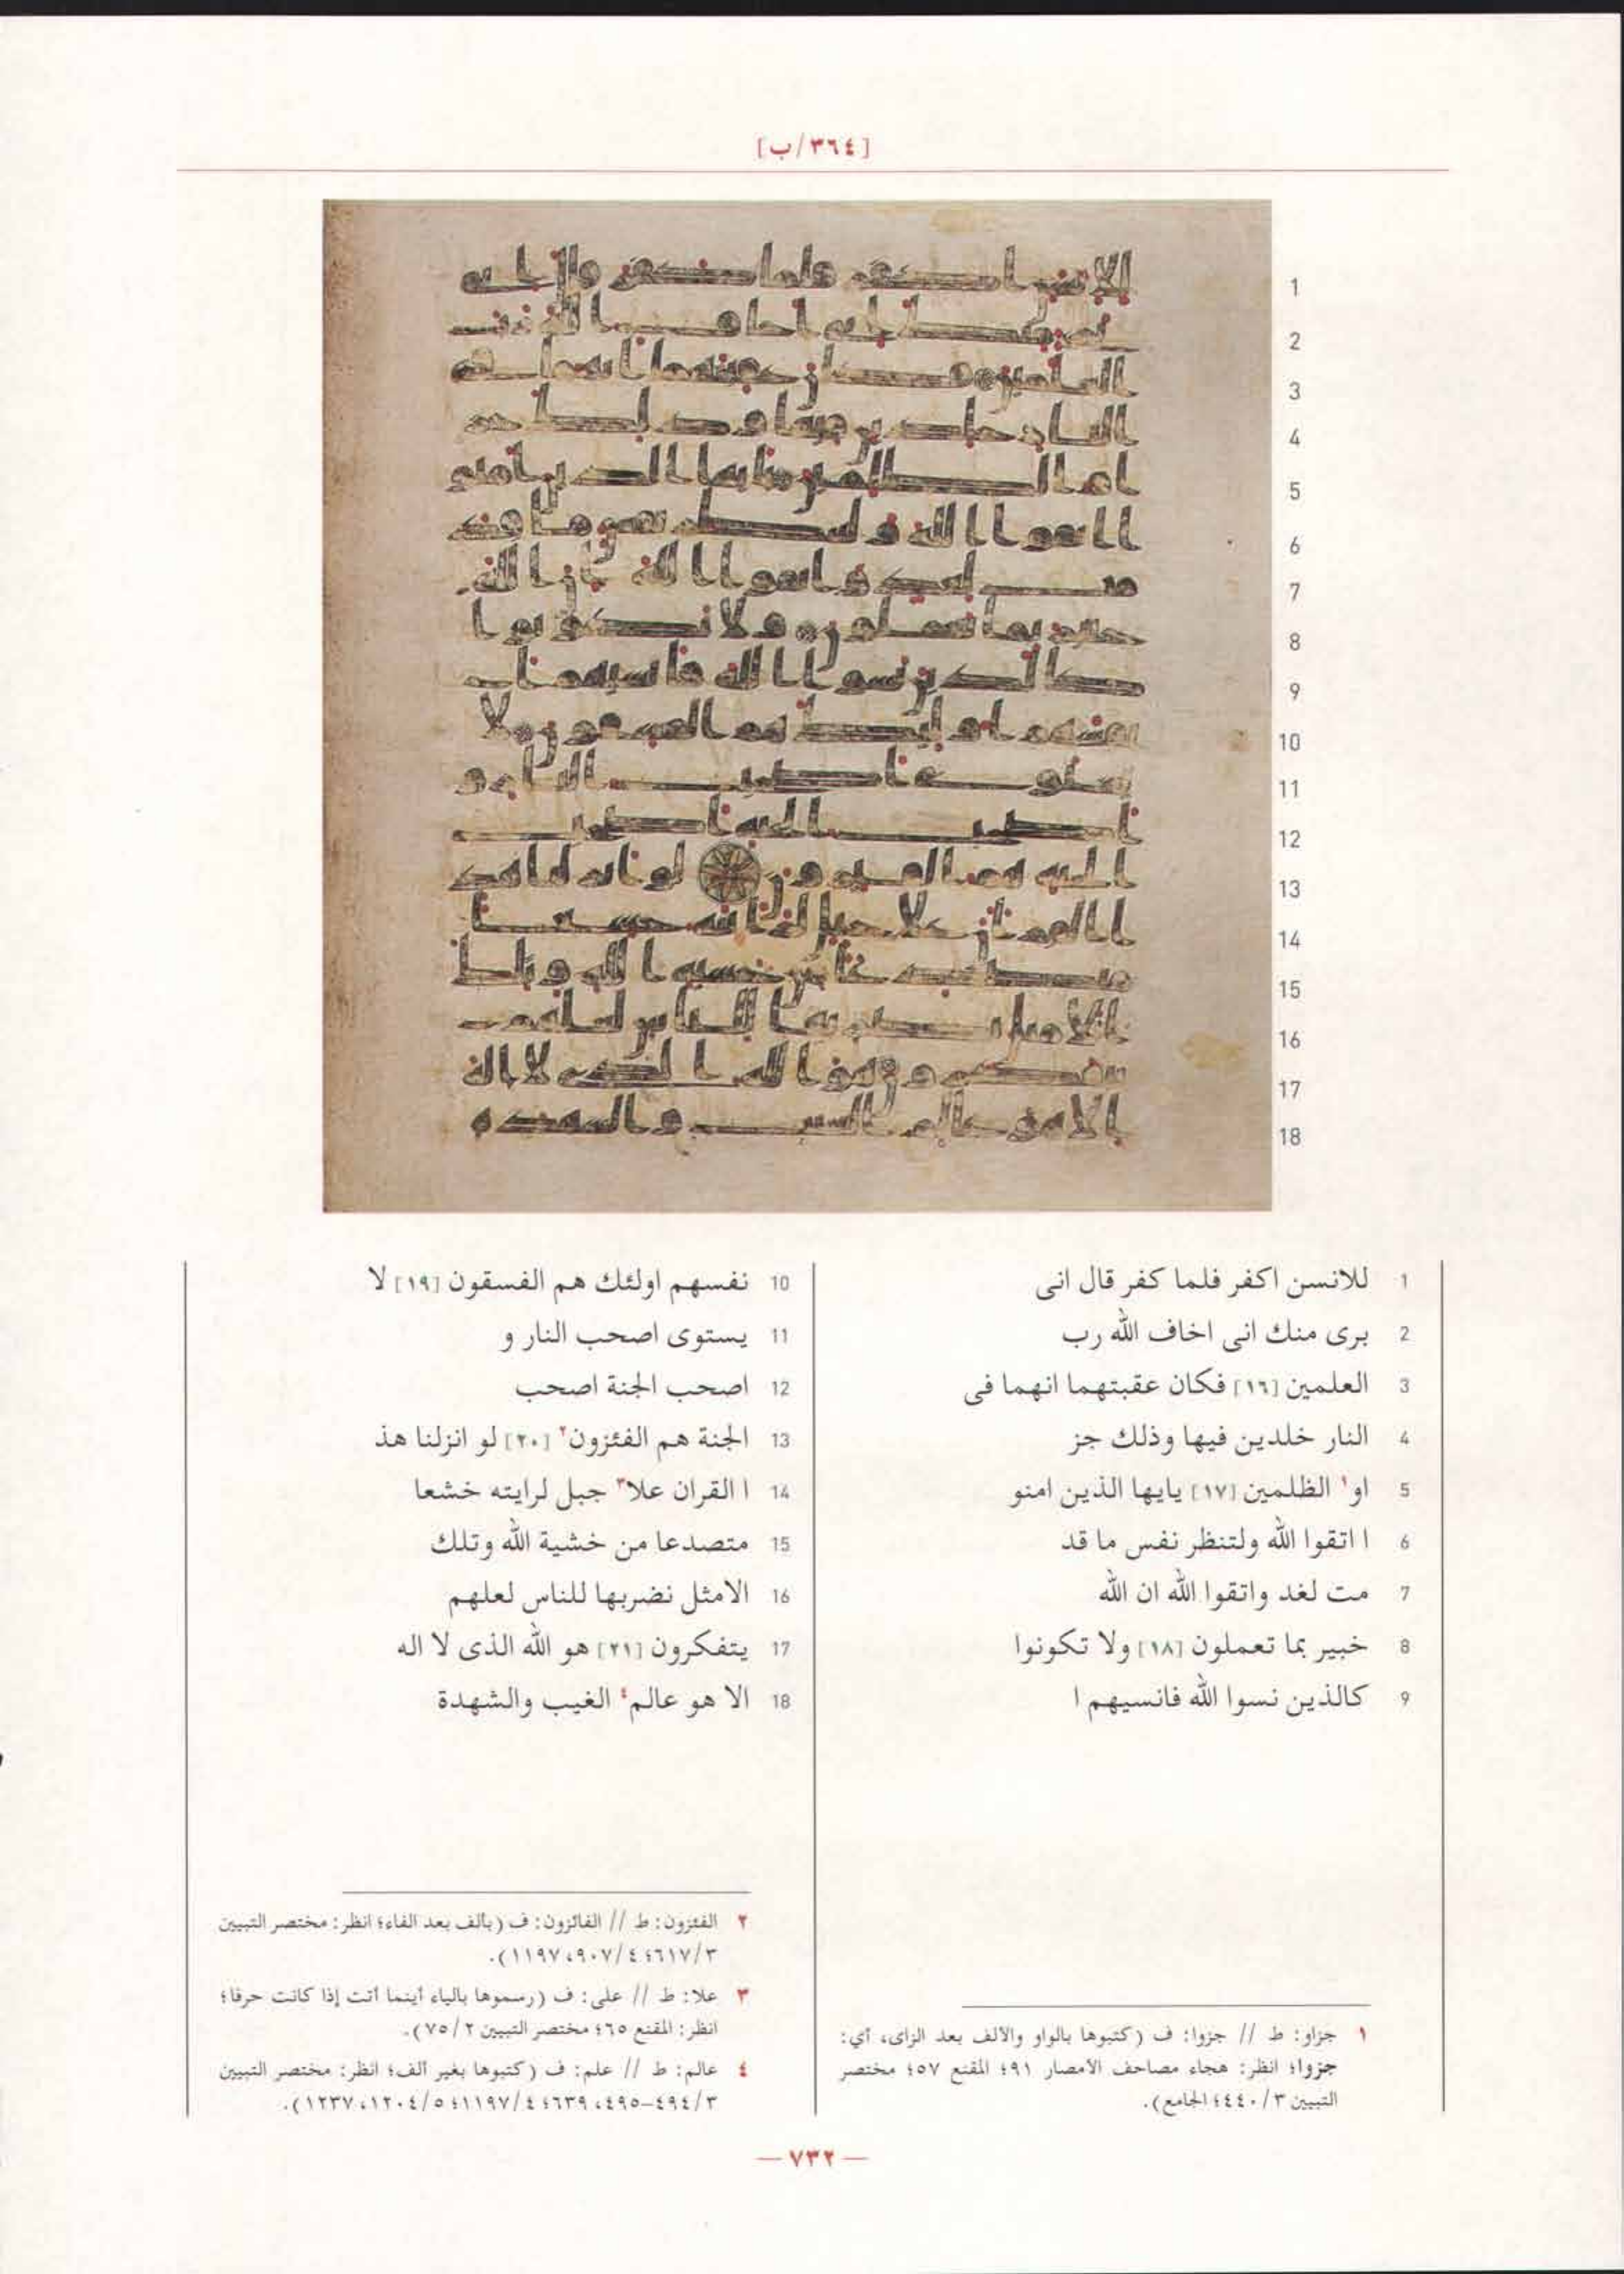 [٣٦٤/ب]
1 للانسن اكفر فلما كفر قال انى
2 برى منك انى اخاف الله رب
3 العلمين [١٦] فكان عقبتهما انهما فى
4 النار خلدين فيها وذلك جز
5 او١ الظلمين [١٧] يايها الذين امنو
6 ا اتقوا الله ولتنظر نفس ما قد
7 مت لغد واتقوا الله ان الله
8 خبير بما تعملون [١٨] ولا تكونوا
9 كالذين نسوا الله فانسيهم ا
10 نفسهم اولئك هم الفسقون [١٩] لا
11 يستوى اصحب النار و
12 اصحب الجنة اصحب
13 الجنة هم الفئزون٢ [٢٠] لو انزلنا هذ
14 ا القران علا٣ جبل لرايته خشعا
15 متصدعا من خشية الله وتلك
16 الامثل نضربها للناس لعلهم
17 يتفكرون [٢١] هو الله الذى لا اله
18 الا هو عالم٤ الغيب والشهدة
١ جزاو: ط // جزوا: ف (كتبوها بالواو والالف بعد الزاى، أي:
جزوا؛ انظر: هجاء مصاحف الأمصار ٩١؛ المقنع ٥٧؛ مختصر
التبيين ٣/٤٤٠؛ الجامع).
٢ الفئزون: ط // الفائزون: ف (بألف بعد الفاء؛ انظر: مختصر التبيين
٣/٦١٧؛ ٤/٩٠٧، ١١٩٧).
٣ علا: ط // على: ف (رسموها بالياء أينما أتت إذا كانت حرفا؛
انظر: المقنع ٦٥؛ مختصر التبيين ٢/٧٥).
٤ عالم: ط // علم: ف (كتبوها بغير ألف؛ انظر: مختصر التبيين
٣/٤٩٤-٤٩٥، ٦٣٩؛ ٤/١١٩٧؛ ٥/١٢٠٤، ١٢٣٧).
— ٧٣٢ —